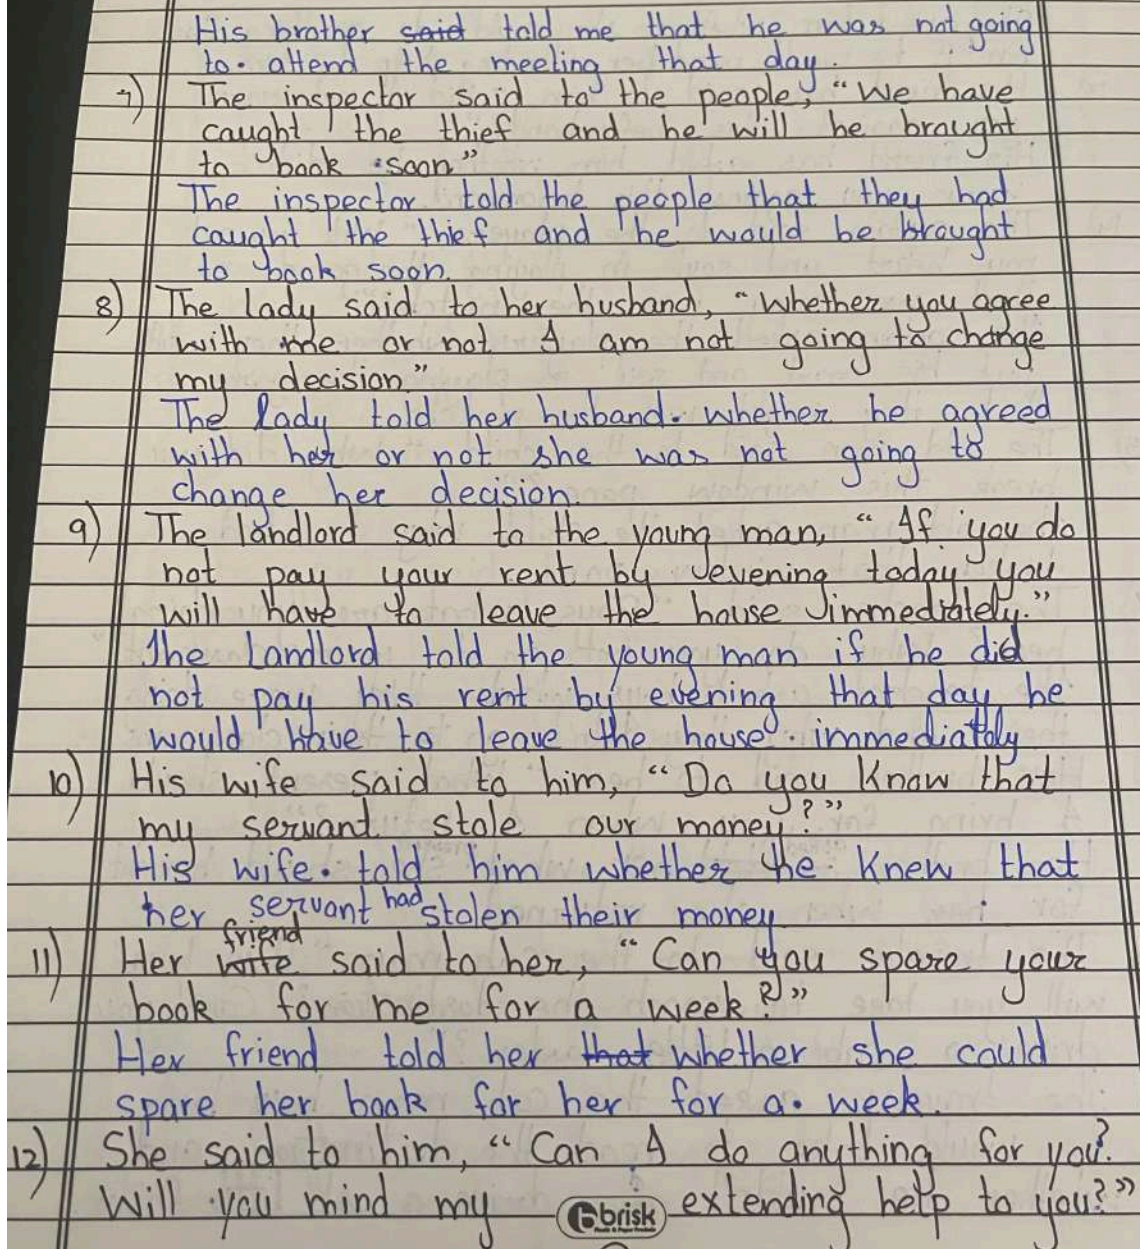 His brother said told me that he was not going
to attend the meeting that day.
7) The inspector said to the people, "We have
caught the thief and he will be brought
to book soon"
The inspector told the people that they had
caught the thief and he would be brought
to book soon.
8) The lady said to her husband, "Whether you agree
with me or not I am not going to change
my decision"
The lady told her husband whether he agreed
with her or not she was not going to
change her decision.
9) The landlord said to the young man, "If you do
not pay your rent by evening today you
will have to leave the house immediately."
The Landlord told the young man if he did
not pay his rent by evening that day he
would have to leave the house immediatly
10) His wife said to him, "Do you know that
my servant stole our money?"
His wife told him whether he knew that
her servant had stolen their money
11) Her friend said to her, "Can you spare your
book for me for a week?"
Her friend told her that whether she could
spare her book for her for a week.
12) She said to him, "Can I do anything for you?
Will you mind my extending help to you?"
brisk